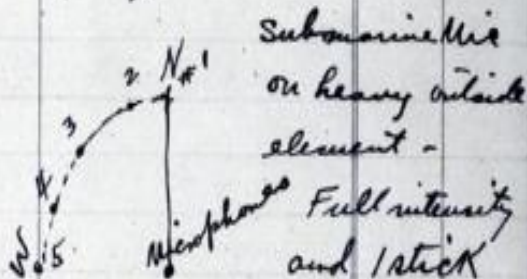 N #1
2
3
4
W 5
Microphones
Submarine Mic
on heavy outside
element -
Full intensity
and 1 stick